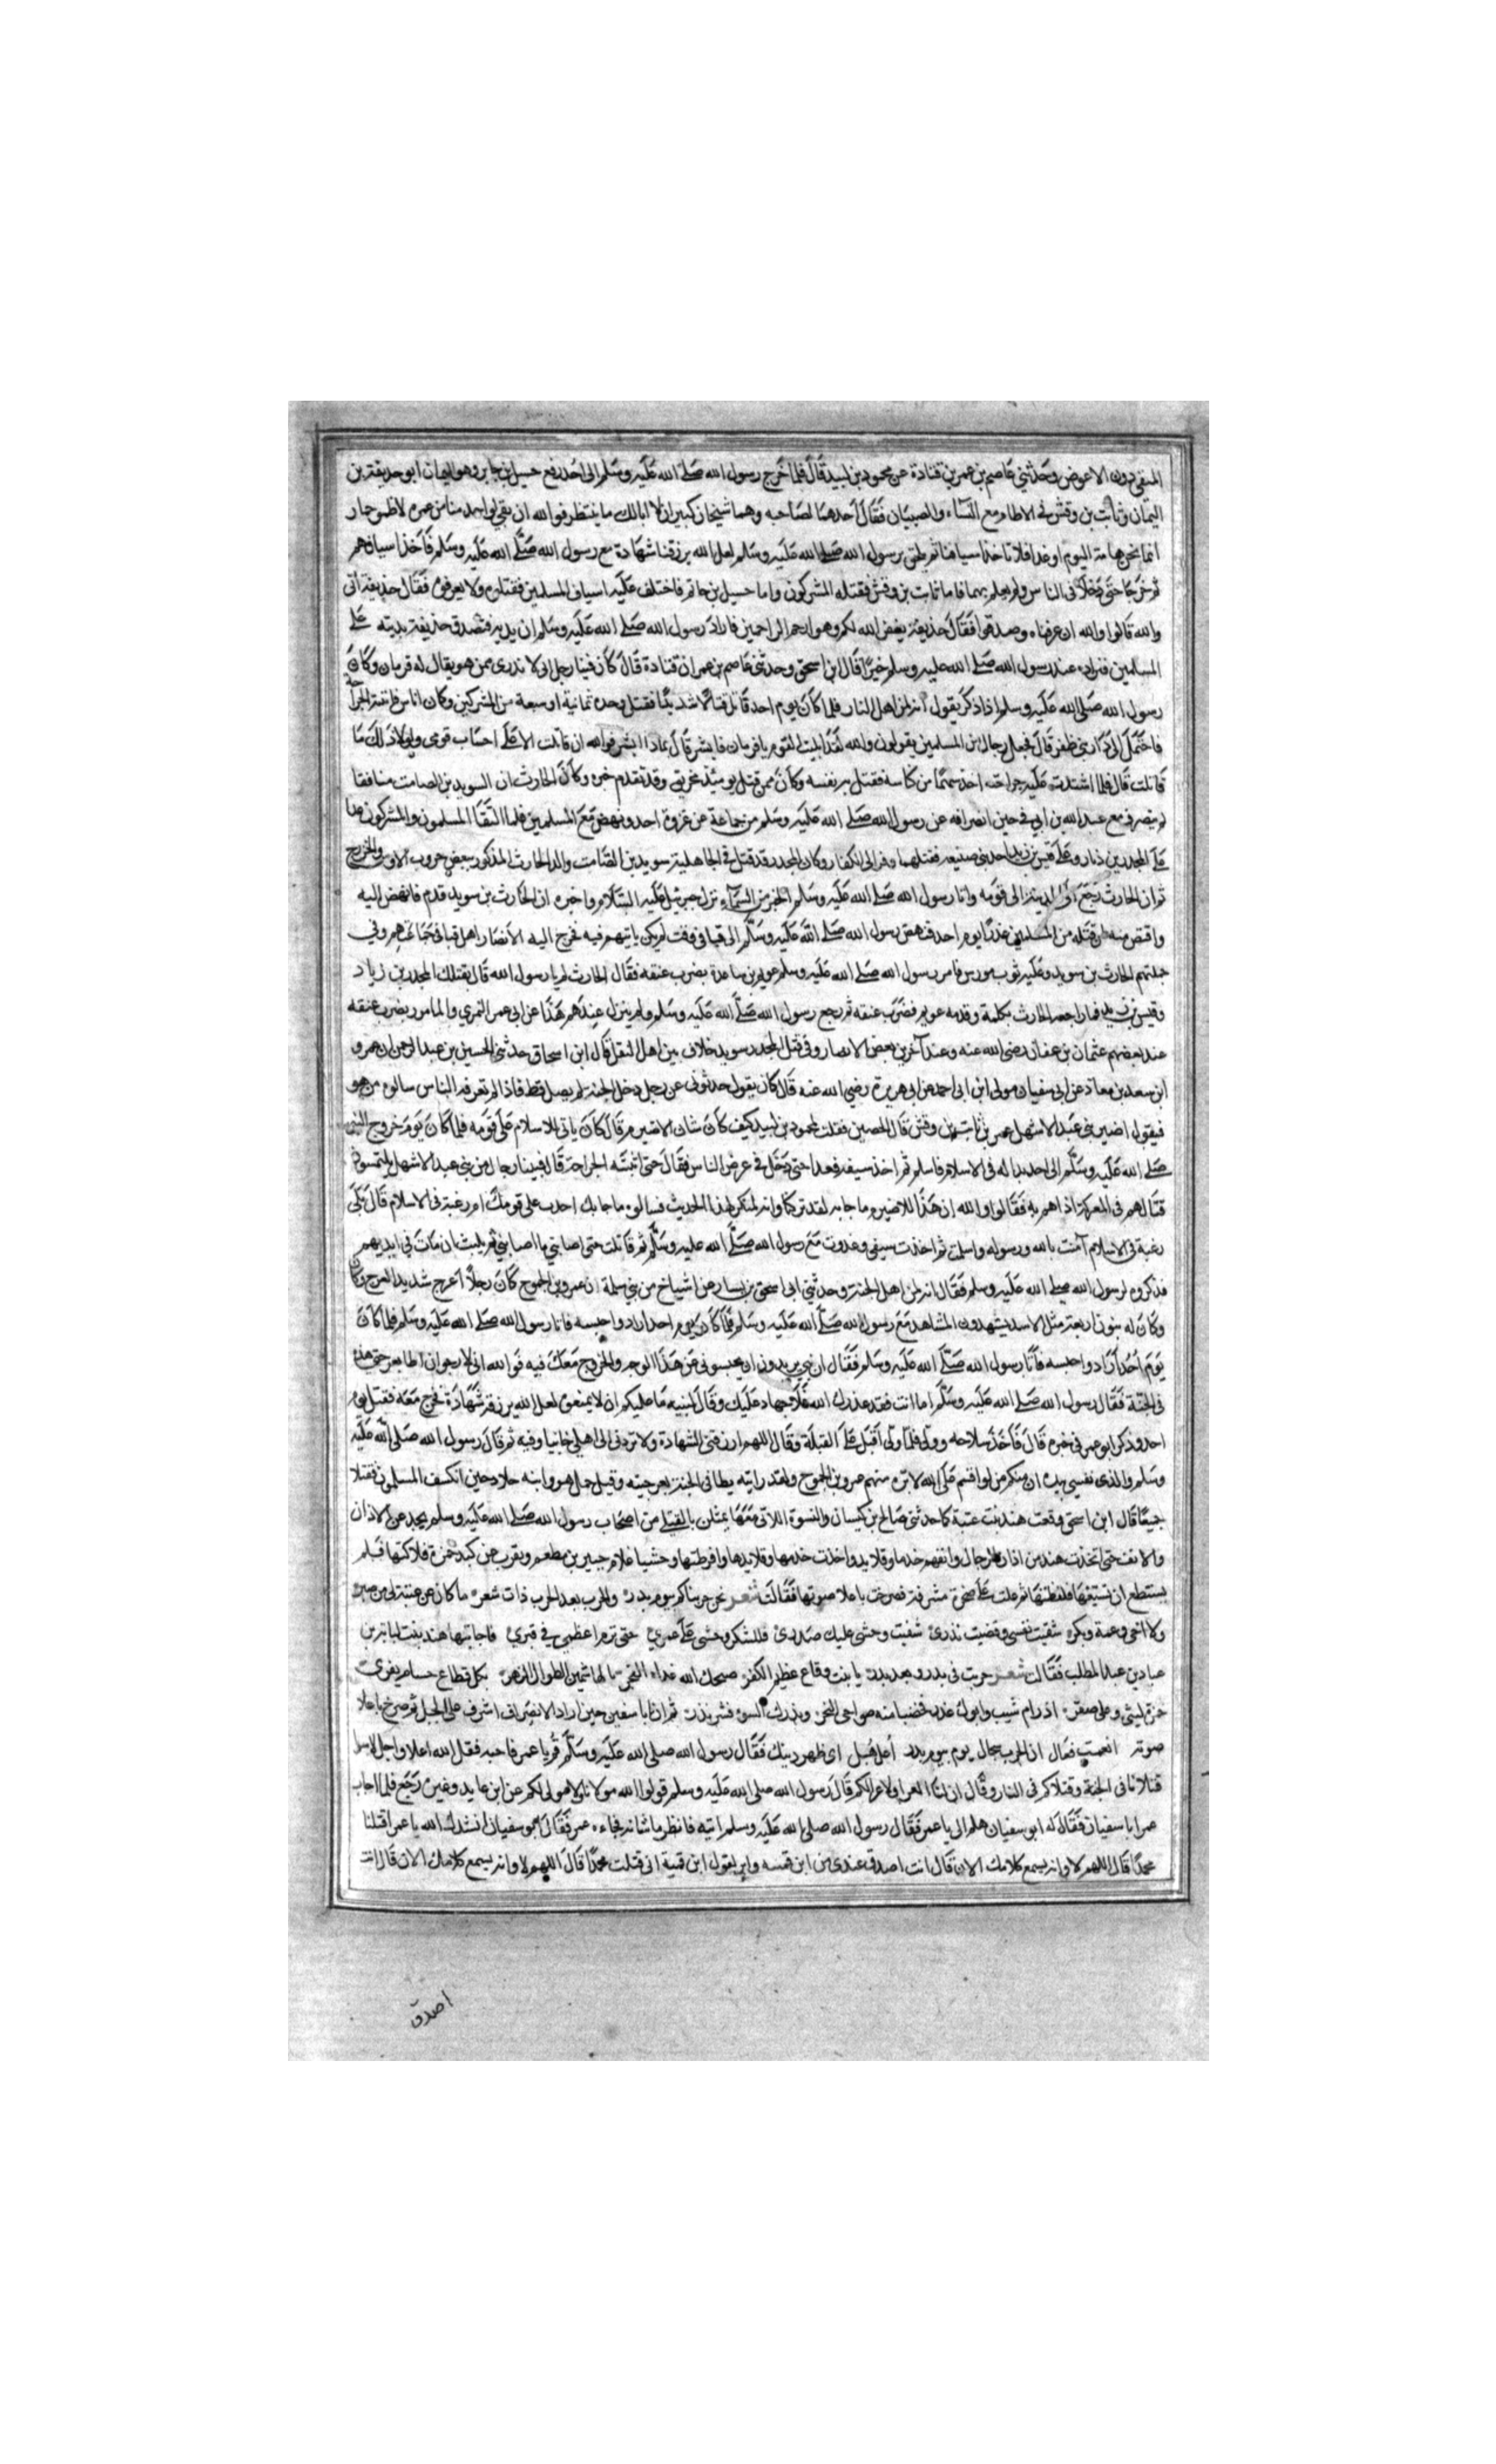 المنقى دون الاعوص وحدثني عاصم بن عمر بن قتادة عن محمود بن لبيد قال فلما خرج رسول الله صلى الله عليه وسلم الى احد رفع حسيل بن جابر وهو اليمان ابو حذيفة بن
اليمان وثابت بن وقش في الاطام مع النساء والصبيان فقال احدهما لصاحبه وهما شيخان كبيران لا ابا لك ما ينتظر فوالله ان بقي لواحد منا من عمره لا ظمو حمار
انما نحن هامة اليوم او غدا فلا ناخذ اسيافنا ثم نلحق برسول الله صلى الله عليه وسلم لعل الله يرزقنا شهادة مع رسول الله صلى الله عليه وسلم فاخذا اسيافهم
ثم خرجا حتى دخلا في الناس ولم يعلم بهما فاما ثابت بن وقش فقتله المشركون واما حسيل بن جابر فاختلف عليه اسياف المسلمين فقتلوه ولا يعرفونه فقال حذيفة ابي
والله قالوا والله ان عرفناه وصدقوا فقال حذيفة يغفر الله لكم وهو ارحم الراحمين فاراد رسول الله صلى الله عليه وسلم ان يديه فتصدق حذيفة بديته على
المسلمين فزاده عند رسول الله صلى الله عليه وسلم خيرا قال ابن اسحق وحدثني عاصم بن عمر ان قتادة قال كان فينا رجل اتى لا ندري ممن هو يقال له قزمان وكان
رسول الله صلى الله عليه وسلم اذا ذكر يقول انه لمن اهل النار فلما كان يوم احد قاتل قتالا شديدا فقتل وحده ثمانية او سبعة من المشركين وكان اناس فاثبتته الجراحة
فاحتمل الى دار بني ظفر قال فجعل رجال من المسلمين يقولون والله لقد ابليت اليوم يا قزمان فابشر قال بماذا ابشر فوالله ان قاتلت الا على احساب قومي ولولا ذلك ما
قاتلت قال فلما اشتدت عليه جراحته اخذ سهما من كنانته فقتل به نفسه وكان ممن قتل يومئذ مخريق وقد تقدم خبره وكان الحارث ان السويد بن الصامت منافقا
لم ينصرف مع عبد الله بن ابي في حين انصرافه عن رسول الله صلى الله عليه وسلم من جماعة عن غزوة احد ونهض مع المسلمين فلما التقا المسلمون والمشركون عدا
على المجدر بن ذياد وعلى قيس بن زيد احد بني ضبيعة فقتلهما وفر الى الكفار وكان المجدر قد قتل في الجاهلية سويد بن الصامت والد الحارث المذكور ببعض حروب الاوس والخزرج
ثم ان الحارث رجع الى المدينة الى قومه واتا رسول الله صلى الله عليه وسلم الخبر من السماء نزل جبرئيل عليه السلام واخبره ان الحارث بن سويد قدم فانهض اليه
واقتص منه لمن قتله من المسلمين غدرا يوم احد فنهض رسول الله صلى الله عليه وسلم الى قبا في وقت لم يكن ياتيهم فيه فخرج اليه الانصار اهل قبا في جماعتهم وفي
جملتهم الحارث بن سويد وعليه ثوب مورس فامر رسول الله صلى الله عليه وسلم عويم بن ساعدة بضرب عنقه فقال الحارث لم يا رسول الله قال بقتلك المجدر بن زياد
وقيس بن زيد فما راجعه الحارث بكلمة وقدمه عويم فضرب عنقه ثم رجع رسول الله صلى الله عليه وسلم ولم ينزل عندهم هذا عن ابي عمر النمري والمامور بضرب عنقه
عند بعضهم عثمان بن عفان رضي الله عنه وعند آخرين بعض الانصار وفي قتل المجدر سويد خلاف بين اهل النقل قال ابن اسحاق حدثني الحسين بن عبد الرحمن ان عمرو
ابن سعد بن معاذ عن ابي سفيان مولى ابن ابي احمد عن ابي هريرة رضي الله عنه قال كان يقول حدثوني عن رجل دخل الجنة لم يصل قط فاذا لم تعرفه الناس سالوه من هو
فيقول اصيرم بني عبد الاشهل عمر بن ثابت بن وقش قال الحصين فقلت لمحمود بن لبيد كيف كان شان الاصيرم قال كان يابى الاسلام على قومه فلما كان يوم خروج النبي
صلى الله عليه وسلم الى احد بدا له في الاسلام فاسلم ثم اخذ سيفه فعدا حتى دخل في عرض الناس فقال حتى اثبتته الجراحة قال فبينا رجال من بني عبد الاشهل يلتمسون
قتالهم في المعركة اذا هم به فقالوا والله ان هذا للاصيرم ما جابه لقد تركناه وانه لمنكر لهذا الحديث فسالوه ما جا بك احدب على قومك ام رغبة في الاسلام قال بلى
رغبة في الاسلام آمنت بالله ورسوله واسلمت ثم اخذت سيفي وغدوت مع رسول الله صلى الله عليه وسلم ثم قاتلت حتى اصابني ما اصابني ثم لم يلبث ان مات في ايديهم
فذكروه لرسول الله صلى الله عليه وسلم فقال انه لمن اهل الجنة وحدثني ابي اسحق بن يسار عن اشياخ من بني سلمة ان عمرو بن الجموح كان رجلا اعرج شديد العرج وكان
وكان له بنون اربعة مثل الاسد يشهدون المشاهد مع رسول الله صلى الله عليه وسلم فلما كان يوم احد ارادوا حبسه فاتا رسول الله صلى الله عليه وسلم فلما كان
يوم احد ارادوا حبسه فاتا رسول الله صلى الله عليه وسلم فقال ان بني يريدون ان يحبسوني عن هذا الوجه والخروج معك فيه فوالله اني لارجو ان اطا بعرجتي هذه
في الجنة فقال رسول الله صلى الله عليه وسلم اما انت فقد عذرك الله فلا جهاد عليك وقال لبنيه ما عليكم ان لا تمنعوه لعل الله يرزقه شهادة فخرج معه فقتل يوم
احد وذكر ابو عمر في خبره قال فاخذ سلاحه وولى فلما ولى اقبل على القبلة وقال اللهم ارزقني الشهادة ولا تردني الى اهلي خائبا وفيه ثم قال رسول الله صلى الله عليه
وسلم والذي نفسي بيده ان منكم من لو اقسم على الله لابره منهم عمرو بن الجموح ولقد رايته يطا في الجنة بعرجته وقيل حمل هو وابنه خلاد حين انكسف المسلمون فقتلا
جميعا قال ابن اسحق وقعت هند بنت عتبة كما حدثني صالح بن كيسان والنسوة اللاتي معها يمثلن بالقتلى من اصحاب رسول الله صلى الله عليه وسلم يجدعن الاذان
والانف حتى اتخذت هند من اذان الرجال وانفهم خدما وقلايد واخذت خدمها وقلايدها واقرطتها وحشيا غلام جبير بن مطعم وبقرت عن كبد حمزة فلاكتها فلم
يستطع ان تسيغها فلفظتها ثم علت على صخرة مشرفة فصرخت باعلا صوتها فقالت شعر نحن جزيناكم بيوم بدر والحرب بعد الحرب ذات شعر ما كان عن عتبة لي من صبر
ولا اخي وعمه وبكره شفيت نفسي وقضيت نذري شفيت وحشي عليك صدري فللشكر وحشي على عمري حتى ترم اعظمي في قبري فاجابتها هند بنت اثاثة بن
عباد بن عبد المطلب فقالت شعر خزيت في بدر وبعد بدر يا بنت وقاع عظيم الكفر صبحك الله غداة الفجر بالهاشميين الطوال الزهر بكل قطاع حسام يفري
حمزة ليثي وعلي صقري اذ رام شيب وابوك غدري فخضبا منه ضواحي النحر ونذرك السوء فشر نذر ثم ان ابا سفين حين اراد الانصراف اشرف على الجبل ثم صرخ باعلا
صوته انعمت فعال ان الحرب سجال يوم بيوم بدر اعل هبل اي ظهر دينك فقال رسول الله صلى الله عليه وسلم قم يا عمر فاجبه فقل الله اعلا واجل لا سوا
قتلانا في الجنة وقتلاكم في النار وقال ان لنا العزى ولا عزى لكم قال رسول الله صلى الله عليه وسلم قولوا الله مولانا ولا مولى لكم عن ابن عايد وغيره رجع فلما اجاب
عمر ابا سفيان فقال له ابو سفيان هلم الي يا عمر فقال رسول الله صلى الله عليه وسلم اتيه فانظر ما شانه فجاءه عمر فقال ابو سفيان انشدك الله يا عمر اقتلنا
محمدا قال اللهم لا وانه يسمع كلامك الان قال انت اصدق عندي من ابن قميه وابر يقول ابن قميه اني قتلت محمدا قال اللهم لا وانه يسمع كلامك الان قال انت
اصدق